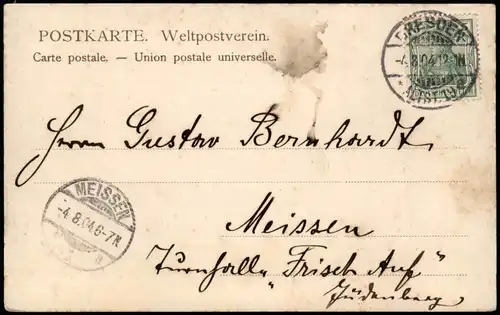 POSTKARTE. Weltpostverein.
Carte postale. — Union postale universelle.
DRESDEN
-4.8.04.12-1N.
ALTST.
Herrn Gustav Bernhardt
MEISSEN
-4.8.04.6-7N.
Meissen
Turnhalle „Frisch Auf"
Judenberg